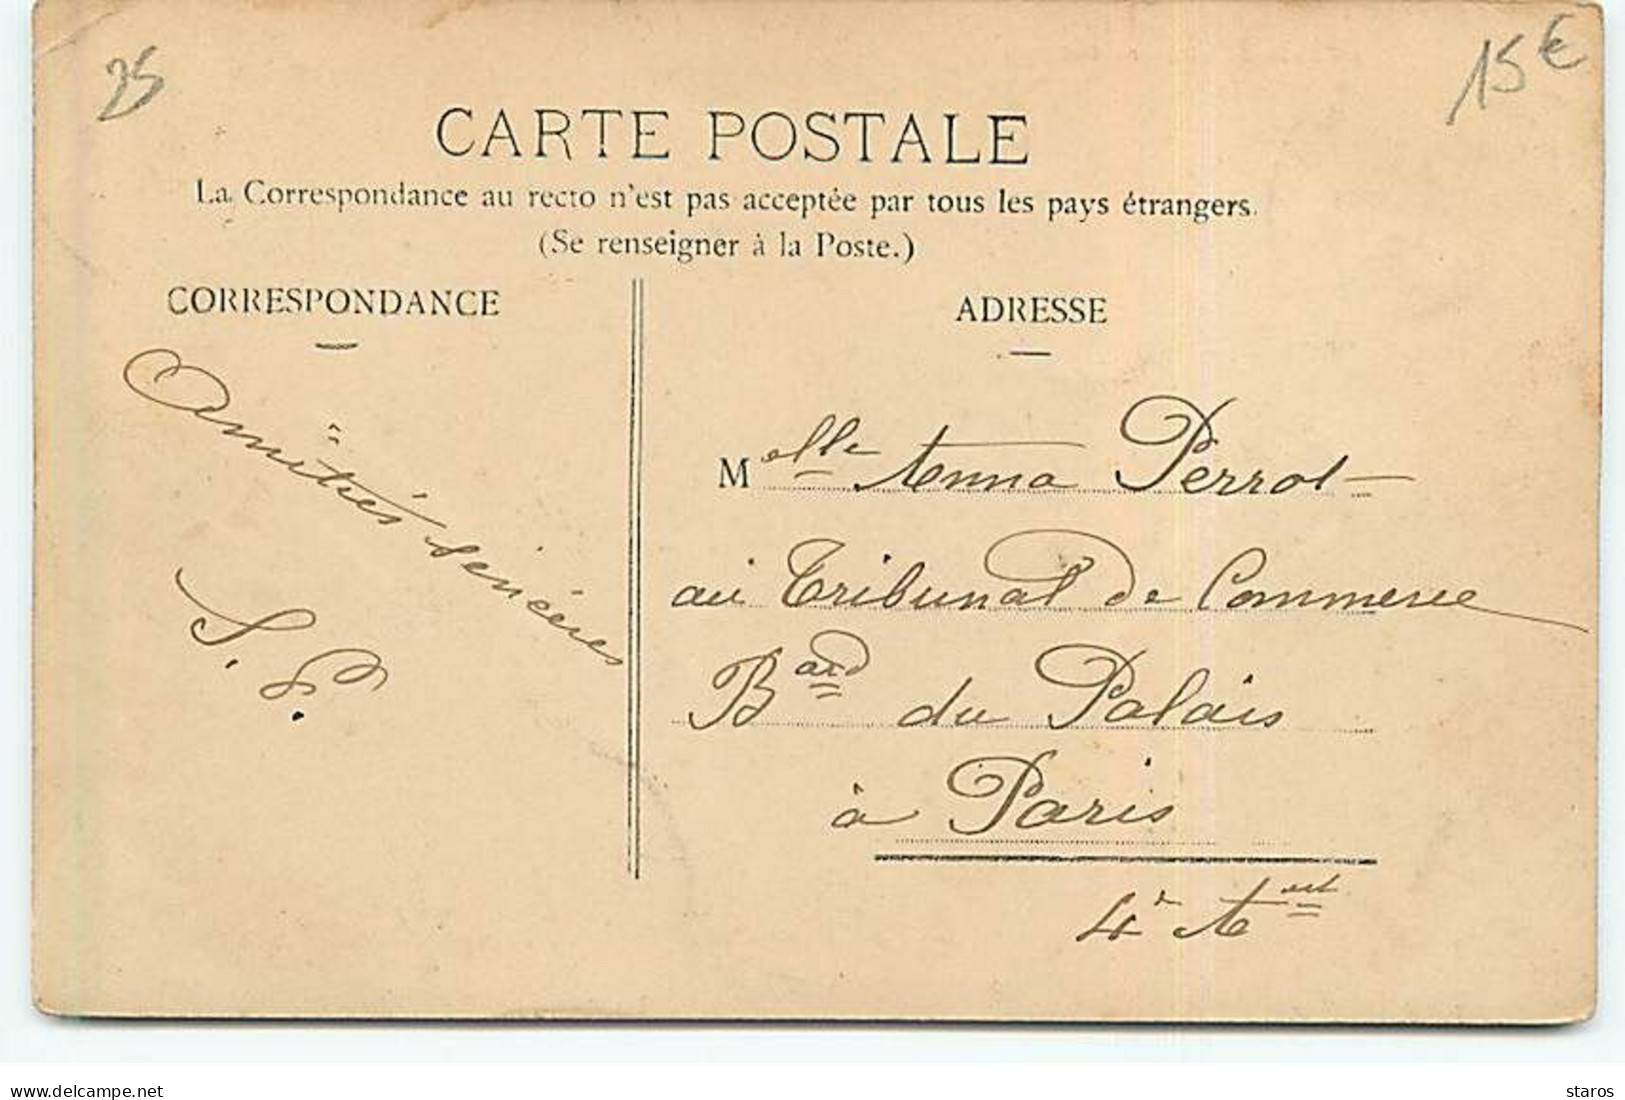 25
15 €
CARTE POSTALE
La Correspondance au recto n'est pas acceptée par tous les pays étrangers.
(Se renseigner à la Poste.)
CORRESPONDANCE
Amitiés sincères
S. P.
ADRESSE
Melle Anna Perrot
au Tribunal de Commerce
Bard du Palais
à Paris
4e Art
delcampe.net
staros